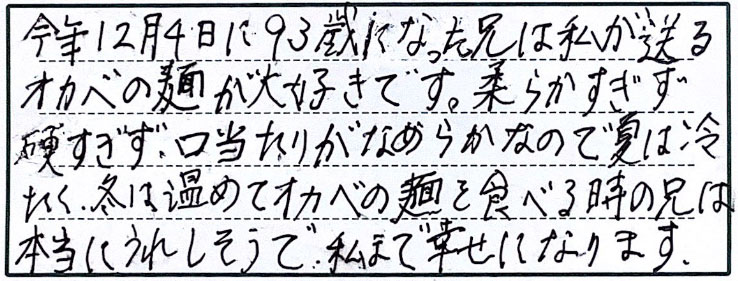 今年12月4日に93歳になった兄は私が送る
オカベの麺が大好きです。柔らかすぎず
硬すぎず、口当たりがなめらかなので夏は冷
たく、冬は温めてオカベの麺を食べる時の兄は
本当にうれしそうで、私まで幸せになります。